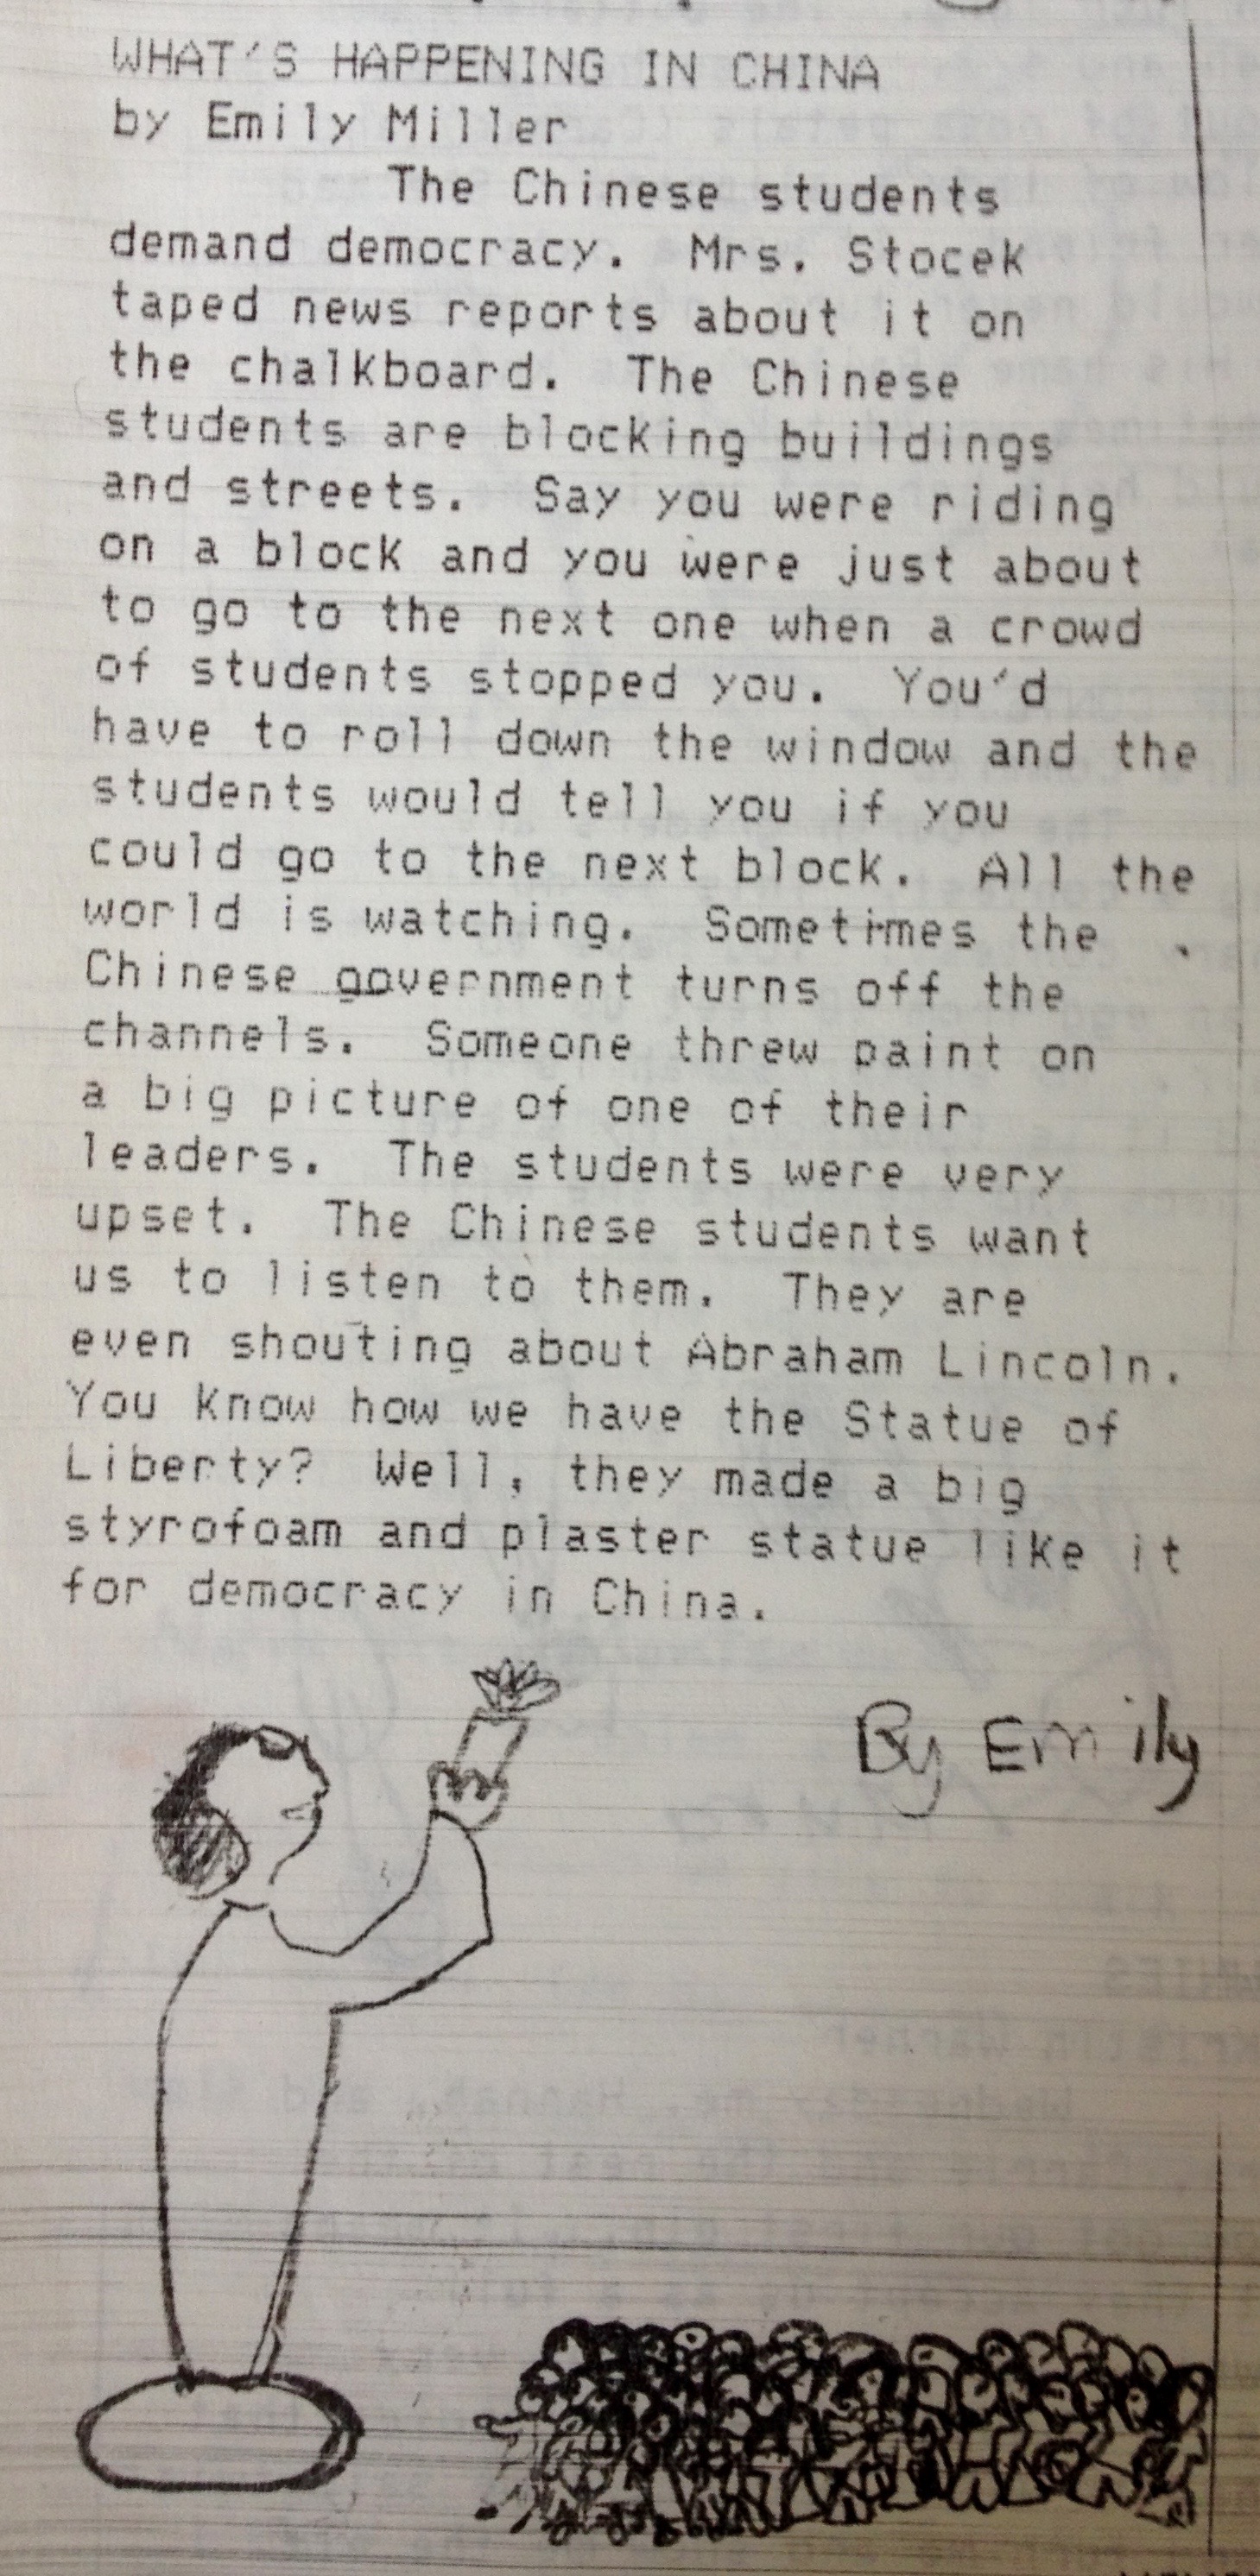 WHAT'S HAPPENING IN CHINA
by Emily Miller
The Chinese students
demand democracy. Mrs. Stocek
taped news reports about it on
the chalkboard. The Chinese
students are blocking buildings
and streets. Say you were riding
on a block and you were just about
to go to the next one when a crowd
of students stopped you. You'd
have to roll down the window and the
students would tell you if you
could go to the next block. All the
world is watching. Sometimes the
Chinese government turns off the
channels. Someone threw paint on
a big picture of one of their
leaders. The students were very
upset. The Chinese students want
us to listen to them. They are
even shouting about Abraham Lincoln.
You know how we have the Statue of
Liberty? Well, they made a big
styrofoam and plaster statue like it
for democracy in China.
By Emily